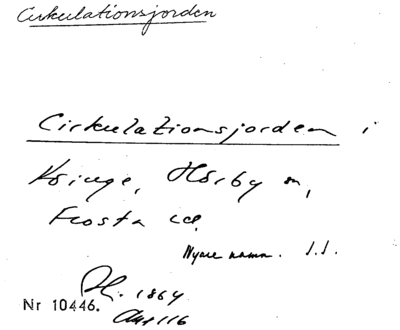 Cirkulationsjorden
Cirkulationsjorden i
Hörby sn,
Frosta hd.
Nyare namn. s.d.
1864
Nr 10446.
116